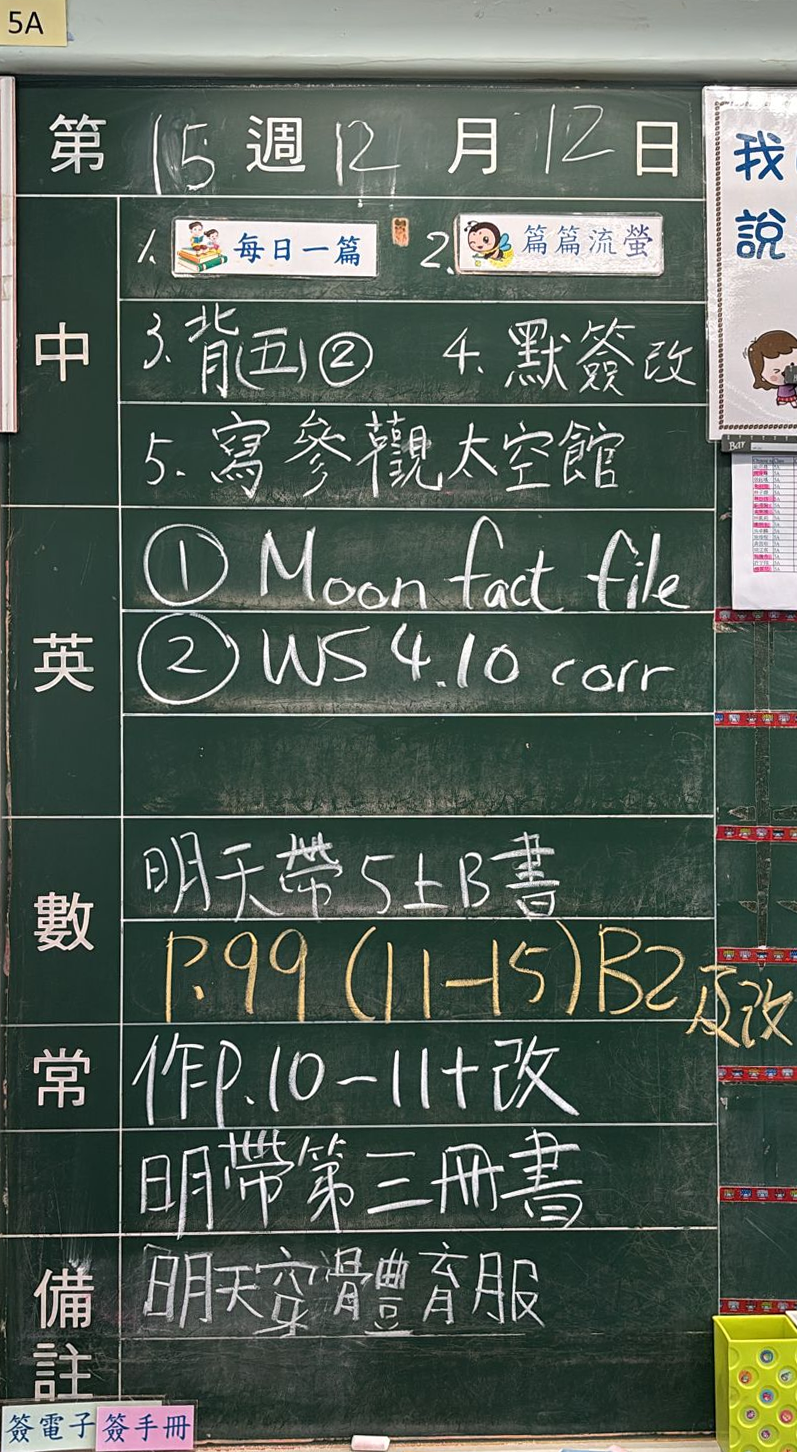 5A
第 15 週 12 月 12 日
中
1. 每日一篇 2. 篇篇流螢
3. 背(五)② 4. 默簽改
5. 寫參觀太空館
英
① Moon fact file
② WS 4.10 corr
數
明天帶5上B書
P.99 (11-15) B2 及改
常
作P.10-11+改
明帶第三冊書
備註
明天穿體育服
簽電子 簽手冊
我
說
Bar